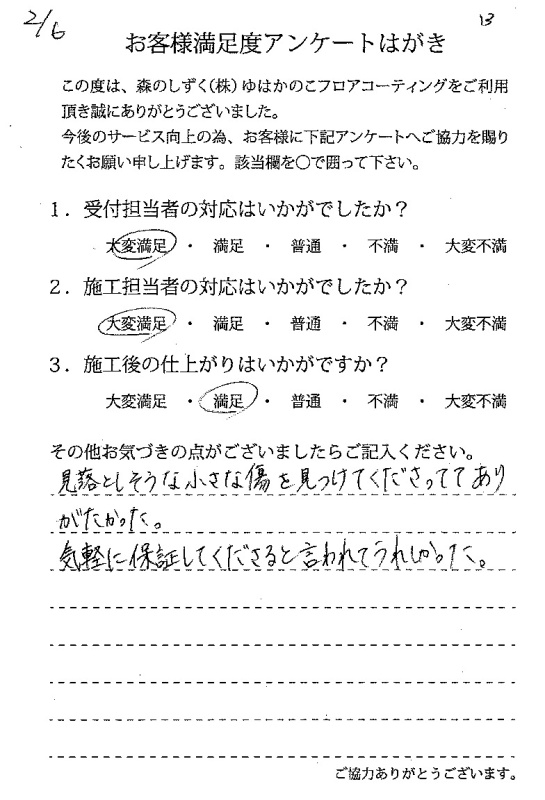 2/6
13
お客様満足度アンケートはがき
この度は、森のしずく(株)ゆはかのこフロアコーティングをご利用
頂き誠にありがとうございました。
今後のサービス向上の為、お客様に下記アンケートへご協力を賜り
たくお願い申し上げます。該当欄を〇で囲って下さい。
1．受付担当者の対応はいかがでしたか？
大変満足 ・ 満足 ・ 普通 ・ 不満 ・ 大変不満
2．施工担当者の対応はいかがでしたか？
大変満足 ・ 満足 ・ 普通 ・ 不満 ・ 大変不満
3．施工後の仕上がりはいかがですか？
大変満足 ・ 満足 ・ 普通 ・ 不満 ・ 大変不満
その他お気づきの点がございましたらご記入ください。
見落としそうな小さな傷を見つけてくださっててあり
がたかった。
気軽に保証してくださると言われてうれしかった。
ご協力ありがとうございます。